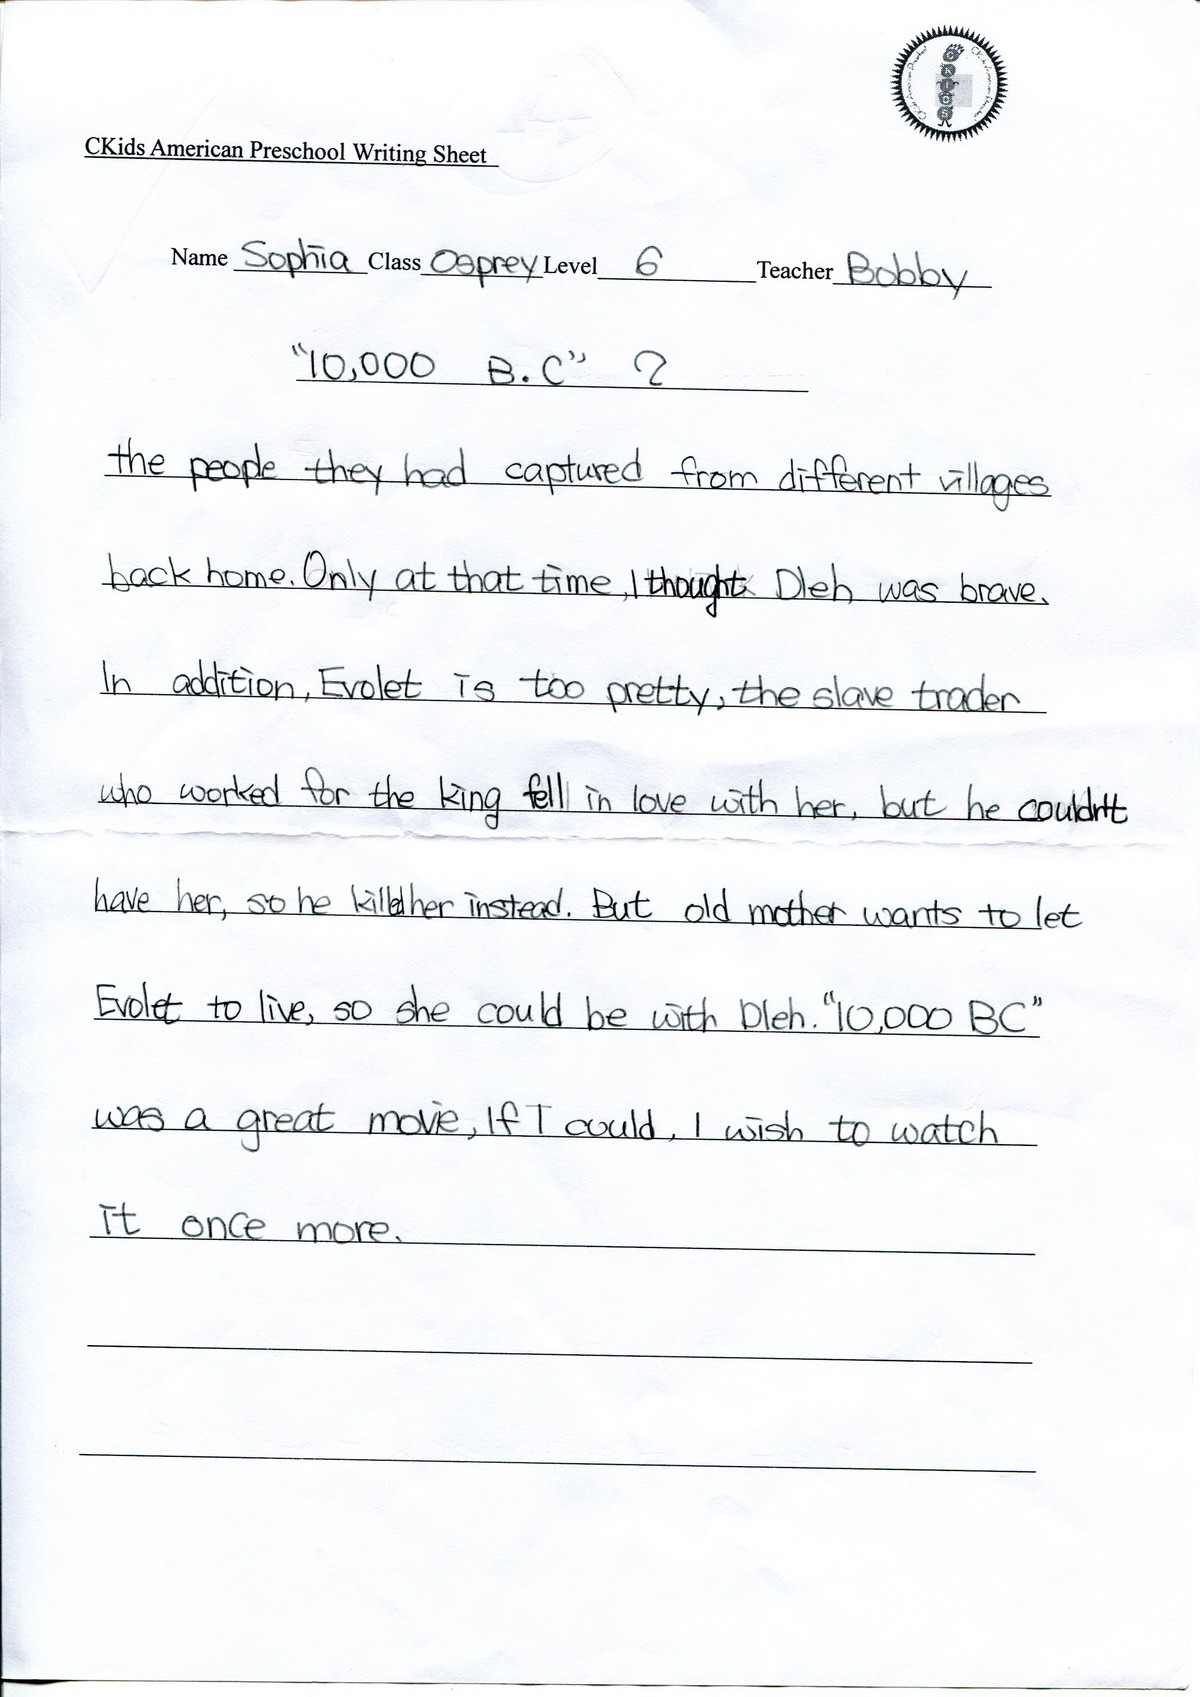 CKids American Preschool Writing Sheet
Name Sophia Class Osprey Level 6 Teacher Bobby
"10,000 B.C" 2
the people they had captured from different villages
back home. Only at that time, I thought Dleh was brave.
In addition, Evolet is too pretty, the slave trader
who worked for the king fell in love with her, but he couldn't
have her, so he killed her instead. But old mother wants to let
Evolet to live, so she could be with Dleh. "10,000 BC"
was a great movie, If I could, I wish to watch
it once more.